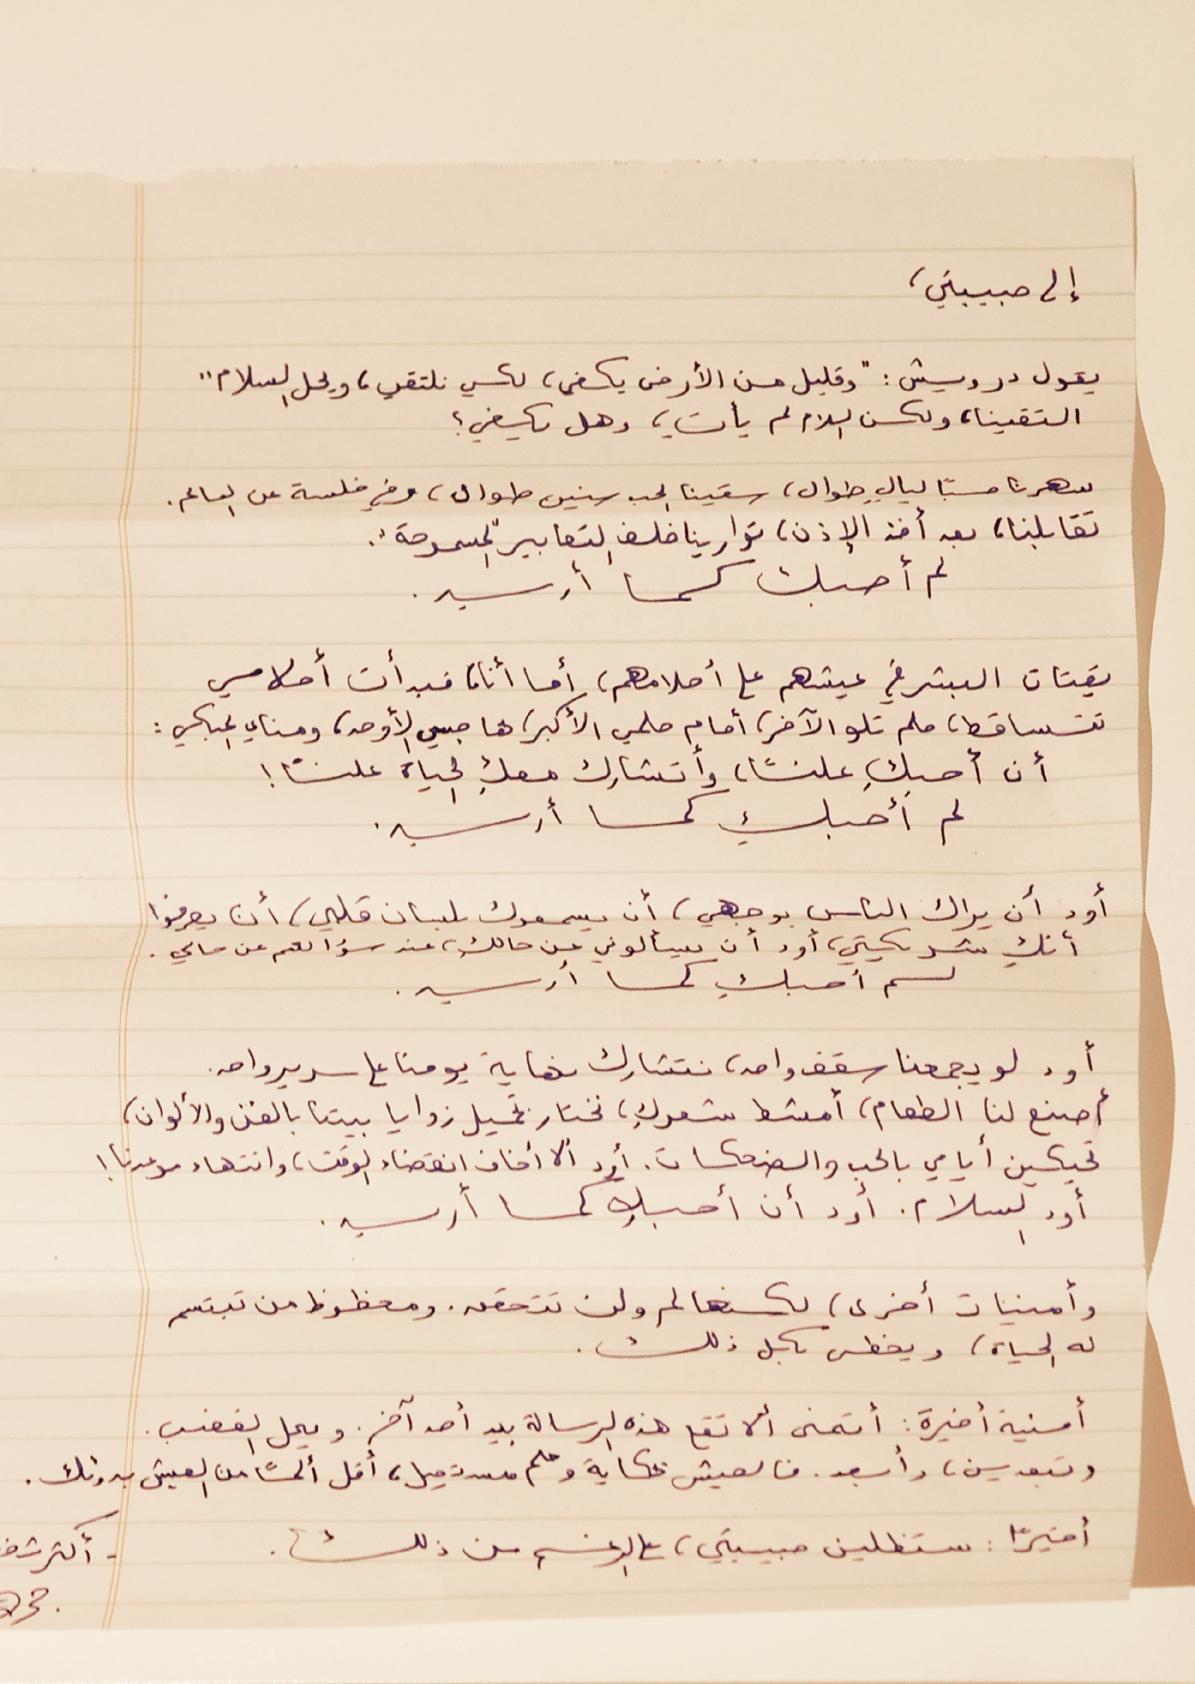 إلى حبيبتي،
يقول درويش: "وقليل من الأرض يكفي، لكي نلتقي، ويحل السلام"
التقينا، ولكن السلام لم يأتِ، وهل يكفي؟
سهرنا حبًا ليالٍ طوال، سقينا الحب سنين طوال، وفي خلسة عن العالم.
تقابلنا، بعد أخذ الإذن، توارينا خلف التعابير "المسموحة".
لم أحبك كما أريد.
يقتات البشر في عيشهم على أحلامهم، أما أنا، فبدأت أحلامي
تتساقط، حلم تلو الآخر، أمام حلمي الأكبر، هاجسي الأوحد، ومناي المبكي:
أن أحبكِ علنًا، وأتشارك معكِ الحياة علنًا!
لم أحبكِ كما أريد.
أود أن يراك الناس بوجهي، أن يسمعوك بلسان قلبي، أن يعرفوا
أنكِ شريكتي، أود أن يسألوني عن حالكِ، عند سؤالهم عن حالي.
لم أحبكِ كما أريد.
أود لو يجمعنا سقف واحد، نتشارك نهاية يومنا على سرير واحد.
أصنع لنا الطعام، أمشط شعركِ، نختار تجميل زوايا بيتنا بالفن والألوان،
تحيكين أيامي بالحب والضحكات. أود ألا أخاف انقضاء الوقت، وانتهاء موعدنا!
أود السلام. أود أن أحبكِ كما أريد.
وأمنيات أخرى، لكنها لم ولن تتحقق. ومحظوظ من تبتسم
له الحياة، ويحظى بكل ذلك.
أمنية أخيرة: أتمنى ألا تقع هذه الرسالة بيد أحد آخر. ويحل الغضب.
وتبعدين، وأبعد. فالعيش بحكاية وحلم مستحيل، أقل ألمًا من العيش بدونك.
أخيرًا: ستظلين حبيبتي، على الرغم من ذلك.
- أكثر